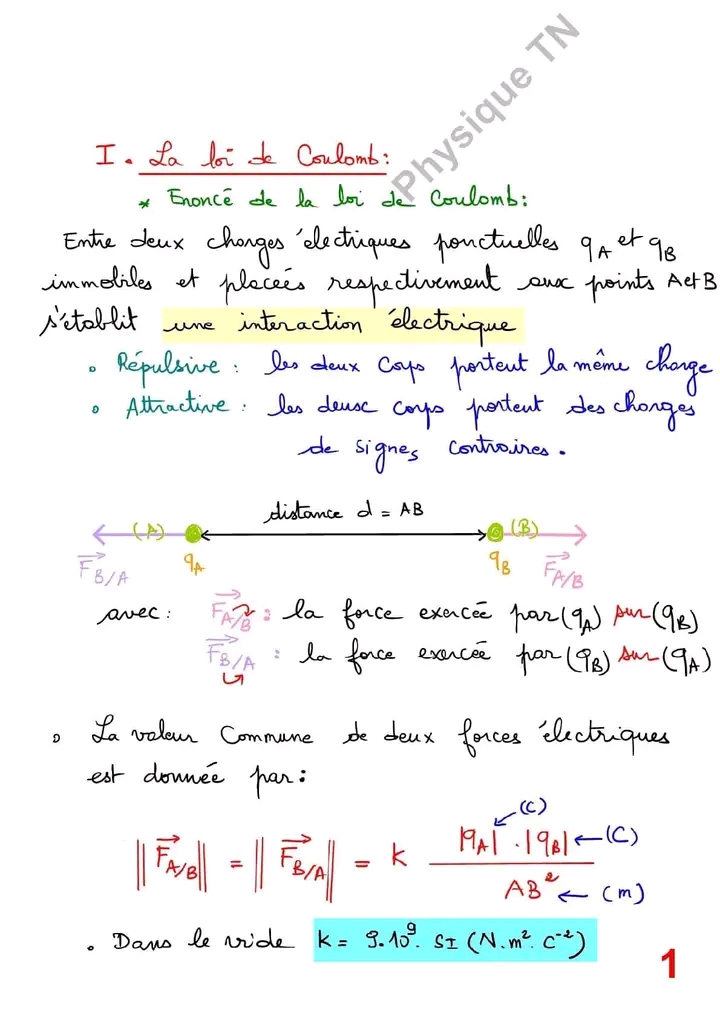 Physique TN
I. La loi de Coulomb:
* Enoncé de la loi de Coulomb:
Entre deux charges électriques ponctuelles qA et qB
immobiles et placées respectivement aux points A et B
s'établit une interaction électrique
• Répulsive : les deux corps portent la même charge
• Attractive : les deux corps portent des charges
de signes contraires.
distance d = AB
(A) (B)
F⃗B/A qA qB F⃗A/B
avec : F⃗A/B : la force exercée par (qA) sur (qB)
F⃗B/A : la force exercée par (qB) sur (qA)
• La valeur Commune de deux forces électriques
est donnée par :
(C)
‖F⃗A/B‖ = ‖F⃗B/A‖ = K |qA| . |qB| ← (C)
AB² ← (m)
• Dans le vide K = 9.10⁹. SI (N.m². C⁻²)
1